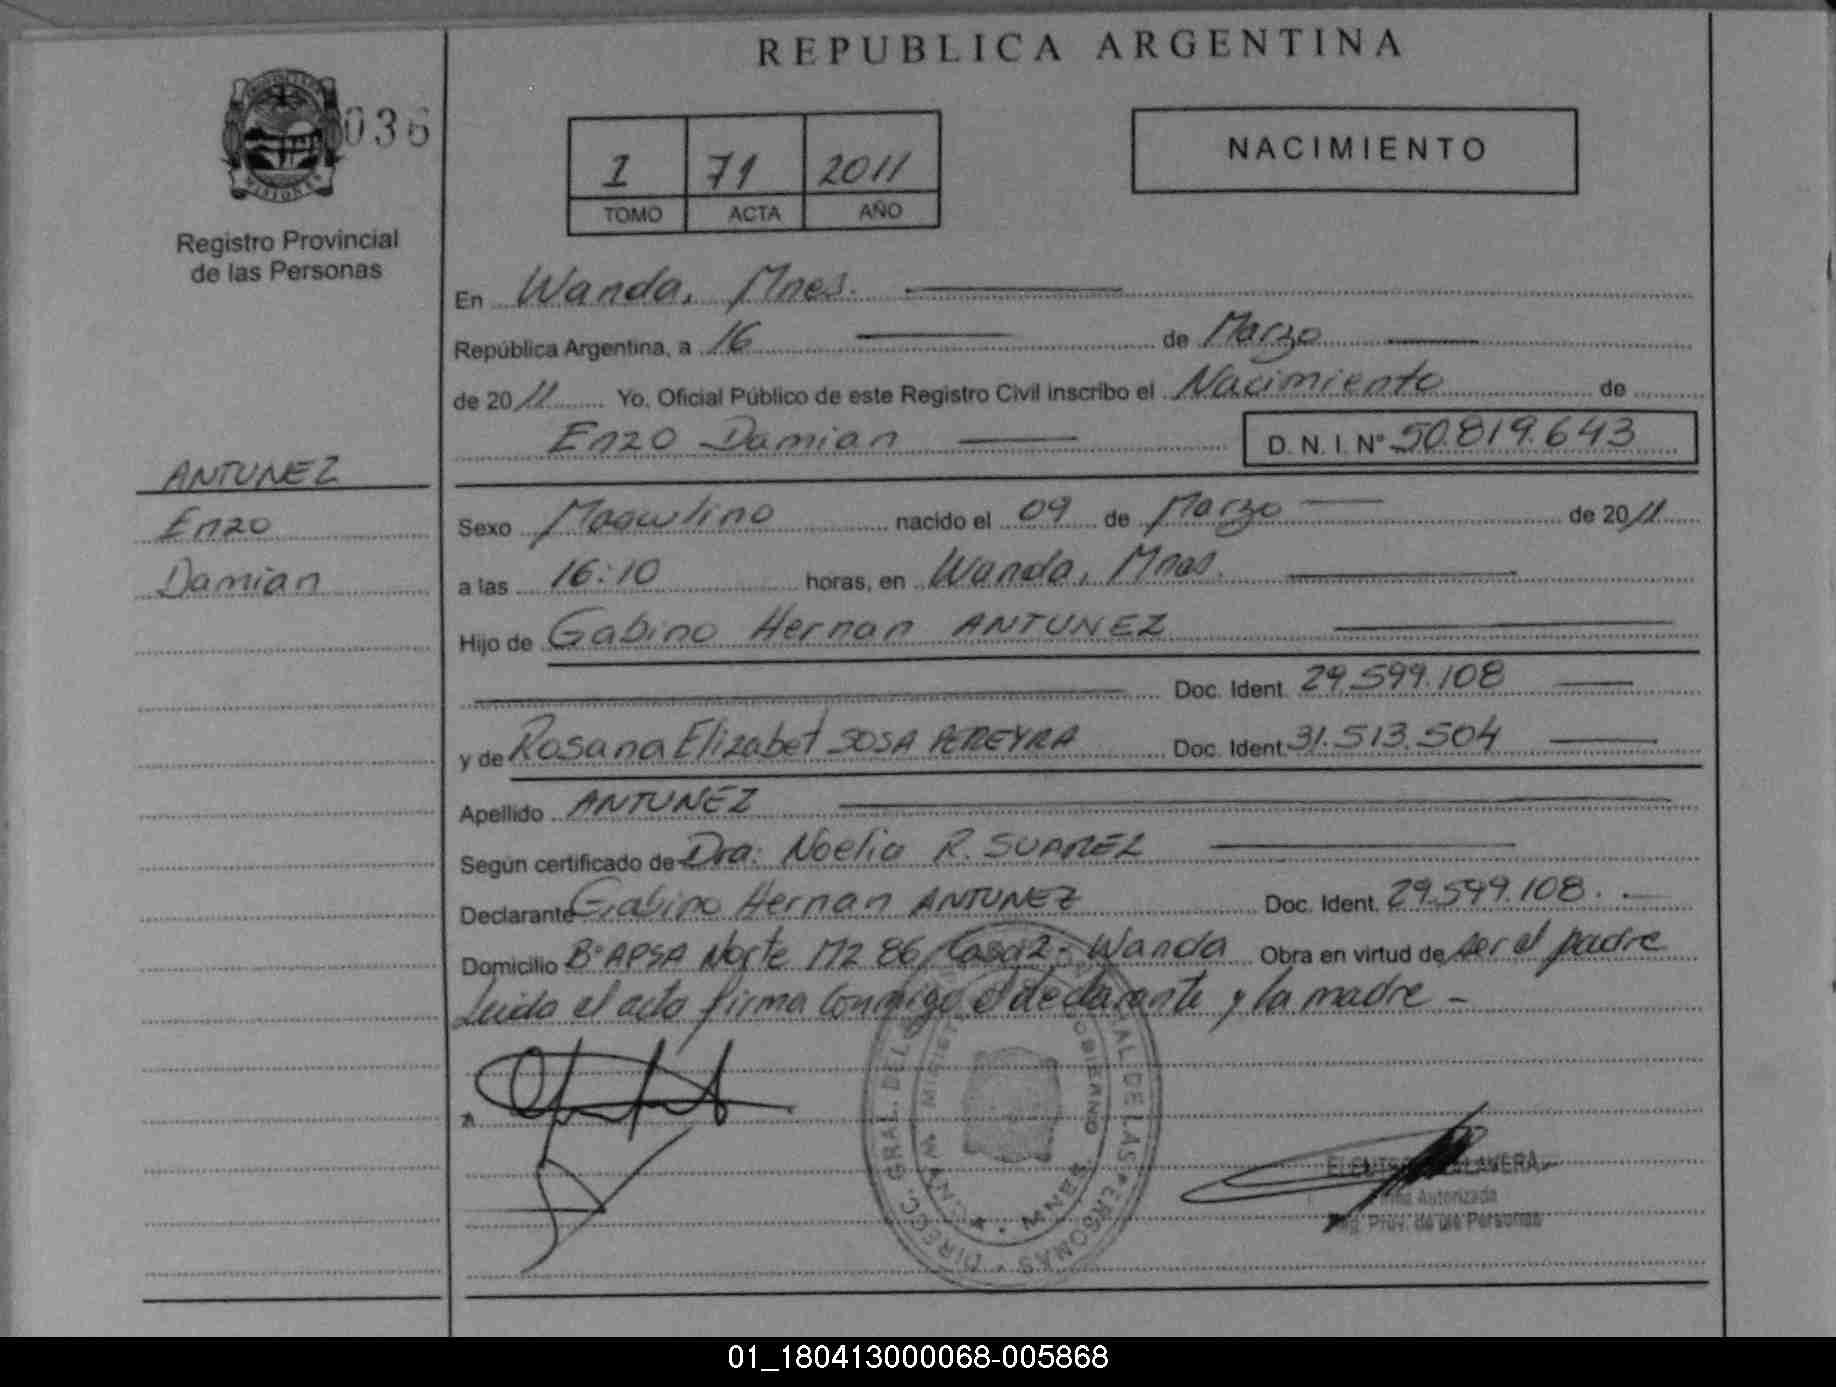 REPUBLICA ARGENTINA
036
MISIONES
Registro Provincial
de las Personas
1 71 2011
TOMO ACTA AÑO
NACIMIENTO
En Wanda, Mnes.
República Argentina, a 16 de Marzo
de 2011 Yo, Oficial Público de este Registro Civil inscribo el Nacimiento de
Enzo Damian D. N. I. Nº 50.819.643
ANTUNEZ
Enzo
Damian
Sexo Masculino nacido el 09 de Marzo de 2011
a las 16:10 horas, en Wanda, Mnes.
Hijo de Gabino Hernan ANTUNEZ
Doc. Ident. 29.599.108
y de Rosana Elizabet SOSA PEREYRA Doc. Ident. 31.513.504
Apellido ANTUNEZ
Según certificado de Dra. Noelia R. SUAREZ
Declarante Gabino Hernan ANTUNEZ Doc. Ident. 29.599.108.
Domicilio Bº APSA Norte Mz 86 Casa 2 - Wanda Obra en virtud de ser el padre
Leida el acta firma conmigo el declarante y la madre -
Firma Autorizada
Reg. Prov. de las Personas
01_180413000068-005868